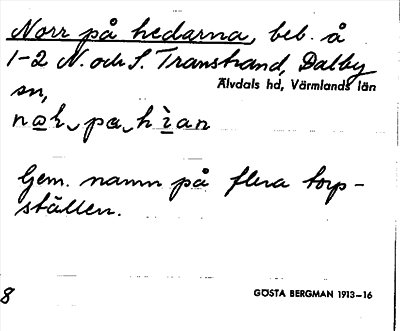 Norr på hedarna, beb. å
1-2 N. och S. Transtrand, Dalby
sn,
Älvdals hd, Värmlands län
Gem. namn på flera torp-
ställen.
8
GÖSTA BERGMAN 1913-16